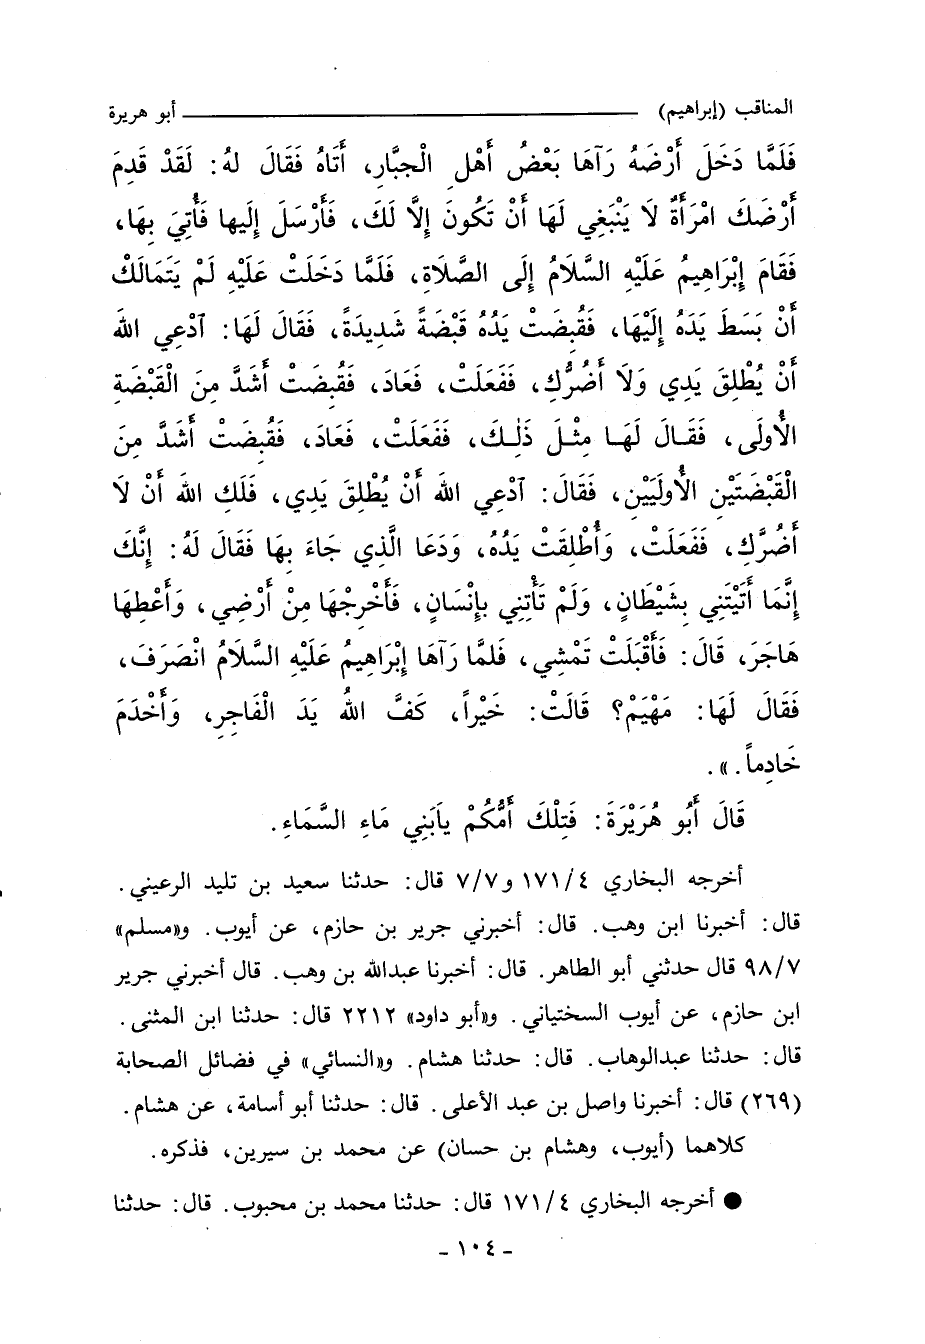 المناقب (إبراهيم) أبو هريرة
فَلَمَّا دَخَلَ أَرْضَهُ رَآهَا بَعْضُ أَهْلِ الْجبَّارِ، أَتَاهُ فَقَالَ لهُ: لَقَدْ قَدِمَ
أَرْضَكَ امْرَأَةٌ لَا يَنْبَغِي لَهَا أَنْ تَكُونَ إِلَّا لَكَ، فَأَرْسَلَ إِليها فَأُتِيَ بِهَا،
فَقَامَ إِبْرَاهِيمُ عَلَيْهِ السَّلَامُ إِلَى الصَّلَاةِ، فَلَمَّا دَخَلَتْ عَلَيْهِ لَمْ يَتَمَالَكْ
أَنْ بَسَطَ يَدَهُ إِلَيْهَا، فَقُبِضَتْ يَدُهُ قَبْضَةً شَدِيدَةً، فَقَالَ لَهَا: ادْعِي اللهَ
أَنْ يُطْلِقَ يَدِي وَلَا أَضُرُّكِ، فَفَعَلَتْ، فَعَادَ، فَقُبِضَتْ أَشَدَّ مِنَ الْقَبْضَةِ
الْأُولَى، فَقَالَ لَهَا مِثْلَ ذَلِكَ، فَفَعَلَتْ، فَعَادَ، فَقُبِضَتْ أَشَدَّ مِنَ
الْقَبْضَتَيْنِ الْأُولَيَيْنِ، فَقَالَ: ادْعِي اللهَ أَنْ يُطْلِقَ يَدِي، فَلَكِ اللهَ أَنْ لَا
أَضُرَّكِ، فَفَعَلَتْ، وَأُطْلِقَتْ يَدُهُ، وَدَعَا الَّذِي جَاءَ بِهَا فَقَالَ لَهُ: إِنَّكَ
إِنَّمَا أَتَيْتَنِي بِشَيْطَانٍ، وَلَمْ تَأْتِنِي بِإِنْسَانٍ، فَأَخْرِجْهَا مِنْ أَرْضِي، وَأَعْطِهَا
هَاجَرَ، قَالَ: فَأَقْبَلَتْ تَمْشِي، فَلمَّا رَآهَا إِبْرَاهِيمُ عَلَيْهِ السَّلَامُ انْصَرَفَ،
فَقَالَ لَهَا: مَهْيَمْ؟ قَالَتْ: خَيْراً، كَفَّ اللهُ يَدَ الْفَاجِرِ، وَأَخْدَمَ
خَادِماً.».
قَالَ أَبُو هُرَيْرَةَ: فَتِلْكَ أُمُّكُمْ يَابَنِي مَاءِ السَّمَاءِ.
أخرجه البخاري ١٧١/٤ و٧/٧ قال: حدثنا سعيد بن تليد الرعيني.
قال: أخبرنا ابن وهب. قال: أخبرني جرير بن حازم، عن أيوب. و«مسلم»
٩٨/٧ قال حدثني أبو الطاهر. قال: أخبرنا عبدالله بن وهب. قال أخبرني جرير
ابن حازم، عن أيوب السختياني. و«أبو داود» ٢٢١٢ قال: حدثنا ابن المثنى.
قال: حدثنا عبدالوهاب. قال: حدثنا هشام. و«النسائي» في فضائل الصحابة
(٢٦٩) قال: أخبرنا واصل بن عبد الأعلى. قال: حدثنا أبو أسامة، عن هشام.
كلاهما (أيوب، وهشام بن حسان) عن محمد بن سيرين، فذكره.
● أخرجه البخاري ١٧١/٤ قال: حدثنا محمد بن محبوب. قال: حدثنا
- ١٠٤ -